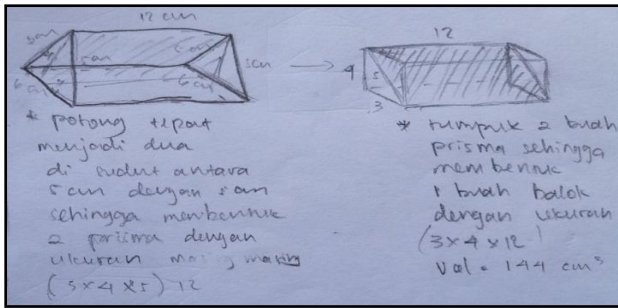 12 cm
5cm
5cm
6cm
6cm
5cm
6cm
* potong tepat
menjadi dua
di sudut antara
5cm dengan 5cm
sehingga membentuk
2 prisma dengan
ukuran masing masing
(3 x 4 x 5) 12
12
4
5
3
* tumpuk 2 buah
prisma sehingga
membentuk
1 buah balok
dengan ukuran
(3 x 4 x 12)
Vol = 144 cm³